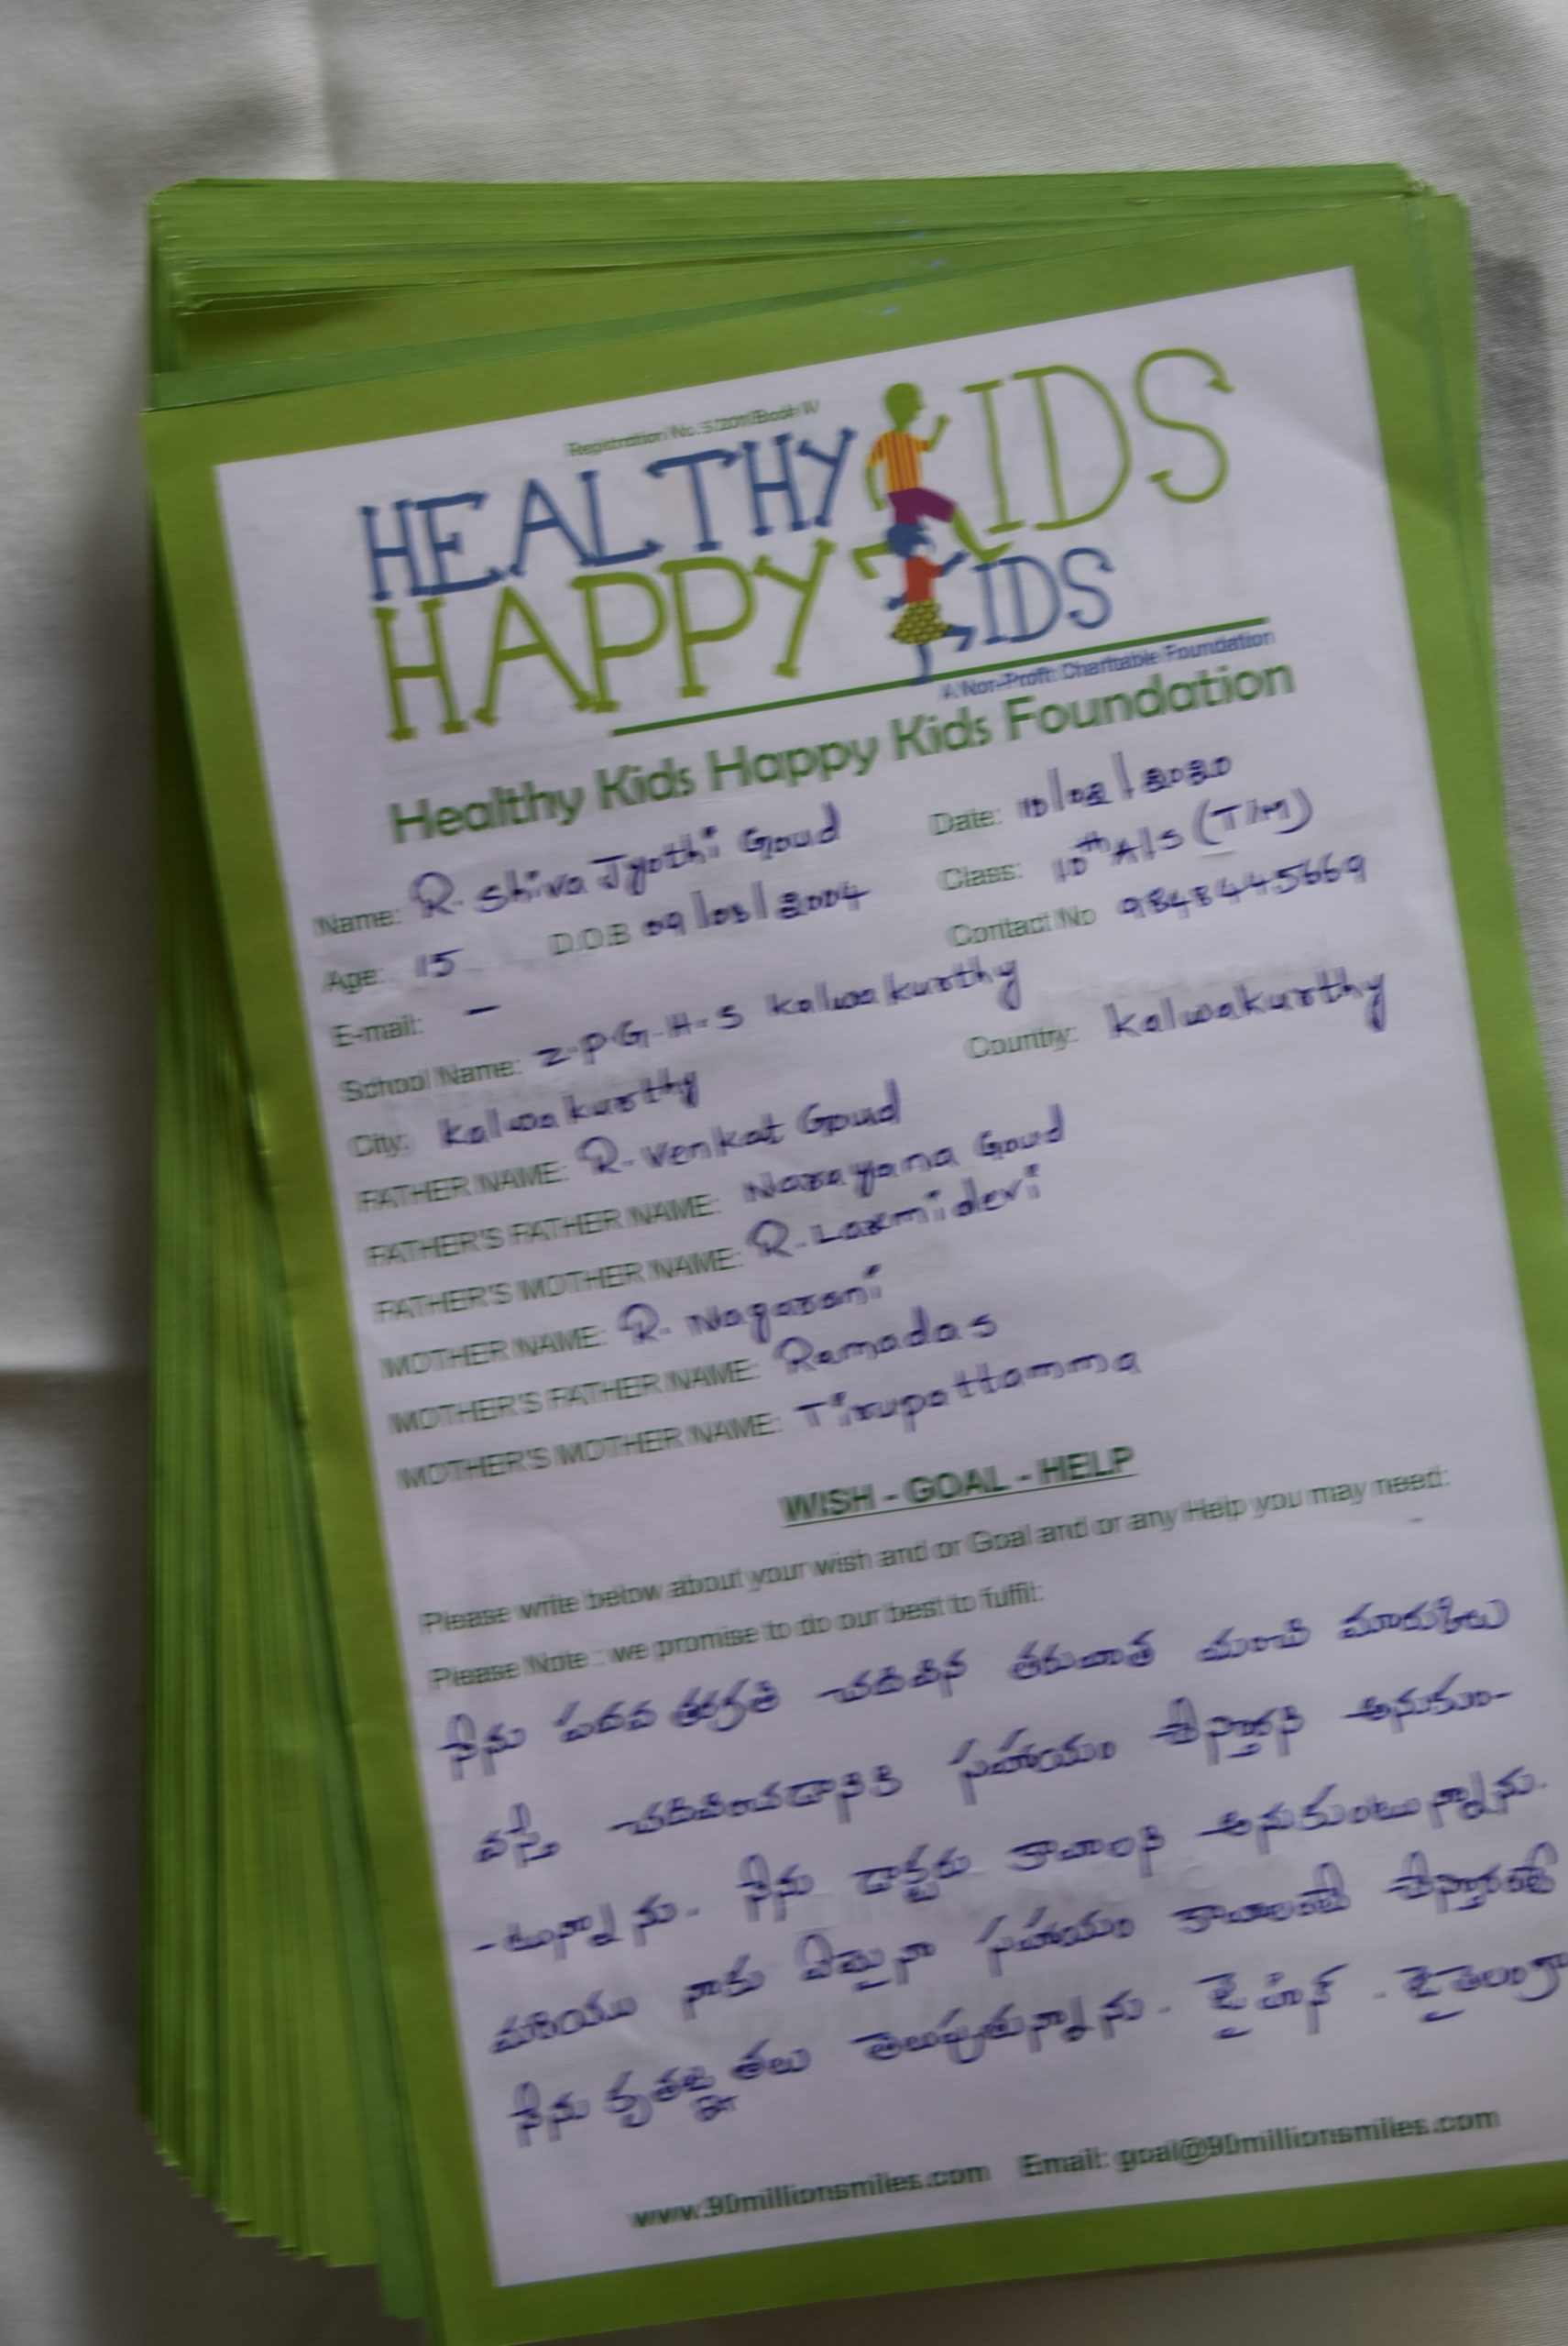 Registration No. 5/2011/Book IV
HEALTHY KIDS
HAPPY KIDS
A Non-Profit Charitable Foundation
Healthy Kids Happy Kids Foundation
Name: R. Shiva Jyothi Goud Date: 10/02/2020
Age: 15 D.O.B 09/03/2004 Class: 10th A/s (T/M)
E-mail: - Contact No 9848445669
School Name: Z.P.G.H.S Kalwakurthy
City: Kalwakurthy Country: Kalwakurthy
FATHER NAME: R. Venkat Goud
FATHER'S FATHER NAME: Narayana Goud
FATHER'S MOTHER NAME: R. Laxmidevi
MOTHER NAME: R. Nagarani
MOTHER'S FATHER NAME: Ramadas
MOTHER'S MOTHER NAME: Tirupattamma
WISH - GOAL - HELP
Please write below about your wish and or Goal and or any Help you may need:
Please Note : we promise to do our best to fulfil:
నేను పదవ తరగతి చదివిన తరువాత మంచి మారుకులు
వస్తే చదివించడానికి సహాయం చేస్తారని అనుకుం-
-టున్నాను. నేను డాక్టరు కావాలని అనుకుంటున్నాను.
మరియు నాకు ఏమైనా సహాయం కావాలంటే చేస్తారంతే
నేను కృతజ్ఞతలు తెలుపుతున్నాను. జై హింద్. జై తెలంగా
www.90millionsmiles.com Email: goal@90millionsmiles.com